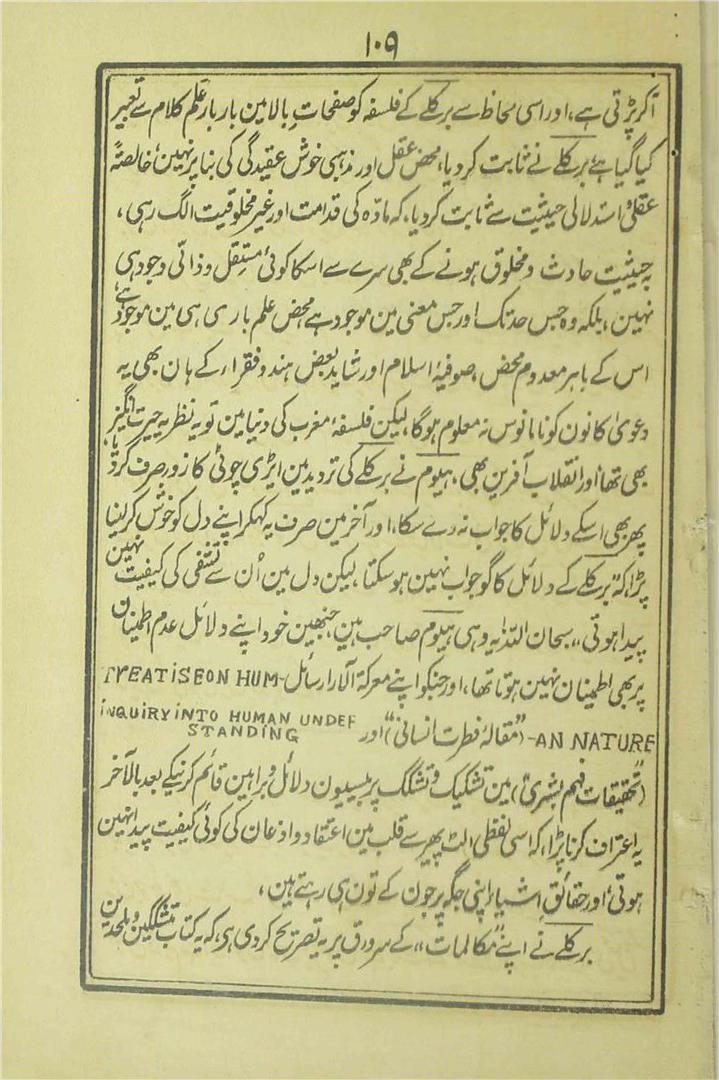 ۱۰۹
آکر پڑتی ہے، اور اسی لحاظ سے برکلے کے فلسفہ کو صفحاتِ بالا مین بار بار علم کلام سے تعبیر
کیا گیا ہے برکلے نے ثابت کردیا، محض عقل اور مذہبی خوش عقیدگی کی بنا پر نہین، خالصۃً
عقلی و استدلالی حیثیت سے ثابت کردیا، کہ مادّہ کی قدامت اور غیر مخلوقیت الگ رہی،
بحیثیت حادث و مخلوق ہونے کے بھی سرے سے اسکا کوئی مستقل و ذاتی وجود ہی
نہین، بلکہ وہ جس حد تک اور جس معنی مین موجود ہے محض علم باری ہی مین موجود ہے،
اس کے باہر معدوم محض، صوفیۂ اسلام اور شاید بعض ہندو فقراء کے ہان بھی یہ
دعویٰ کانون کو نامانوس نہ معلوم ہوگا، لیکن فلسفۂ مغرب کی دنیا مین تو یہ نظریہ حیرت انگیز
بھی تھا، اور انقلاب آفرین بھی، ہیوم نے برکلے کی تردید مین ایڑی چوٹی کا زور صرف کردیا،
پھر بھی اسکے دلائل کا جواب نہ دے سکا، اور آخر مین صرف یہ کہکر اپنے دل کو خوش کرلینا
پڑا کہ "برکلے کے دلائل کا گو جواب نہین ہوسکتا، لیکن دل مین اُن سے تشفی کی کیفیت نہین
پیدا ہوتی"، سبحان اللہ! یہ وہی ہیوم صاحب ہین جنھین خود اپنے دلائل عدم اطمینان
پر بھی اطمینان نہین ہوتا تھا، اور جنکو اپنے معرکۃ الآرا رسائل TREATISE ON HUM-
AN NATURE- ("مقالۂ فطرت انسانی") اور INQUIRY INTO HUMAN UNDER STANDING
("تحقیقات فہم بشری") مین تشکیک و تشکک پر بیسیون دلائل و براہین قائم کرنیکے بعد بالآخر
یہ اعتراف کرنا پڑا، کہ اسی لفظی الٹ پھیر سے قلب مین اعتقاد و اذعان کی کوئی کیفیت پیدا نہین
ہوتی، اور حقائقِ اشیاء اپنی جگہ پر جون کے تون ہی رہتے ہین،
برکلے نے اپنے "مکالمات" کے سرورق پر یہ تصریح کردی ہی، کہ یہ کتاب متشککین و ملحدین